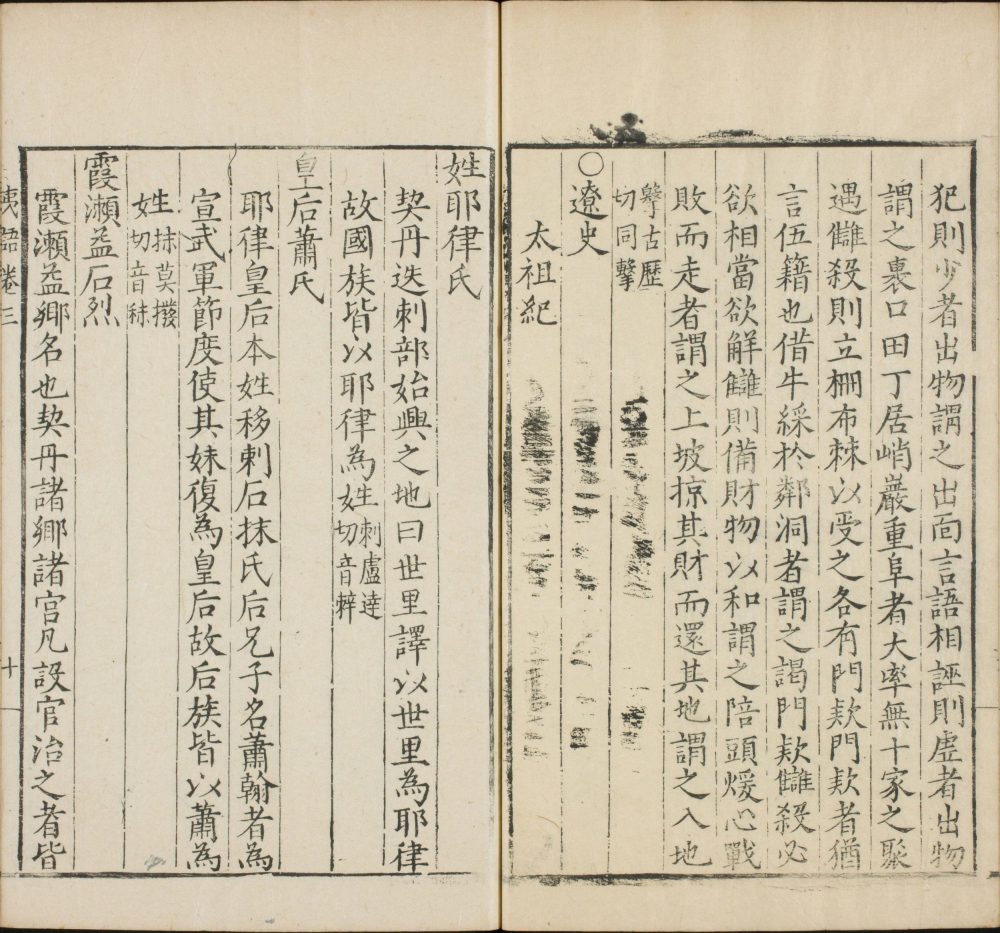 犯則少者出物謂之出面言語相誣則虛者出物
謂之裹口田丁居峭巖重阜者大率無十家之聚
遇讎殺則立柵布棘以受之各有門欵門欵者猶
言伍籍也借牛綵於鄰洞者謂之謁門欵讎殺必
欲相當欲解讎則備財物以和謂之陪頭煖心戰
敗而走者謂之上坡掠其財而還其地謂之入地
擊古歷
切同擊
○遼史
太祖紀
姓耶律氏
契丹迭剌部始興之地曰世里譯以世里為耶律
故國族皆以耶律為姓剌盧達
切音辢
皇后蕭氏
耶律皇后本姓移剌石抹氏后兄子名蕭翰者為
宣武軍節度使其妹復為皇后故后族皆以蕭為
姓抹莫撥
切音秣
霞瀨益石烈
霞瀨益鄉名也契丹諸鄉諸宮凡設官治之者皆
夷語卷三
十